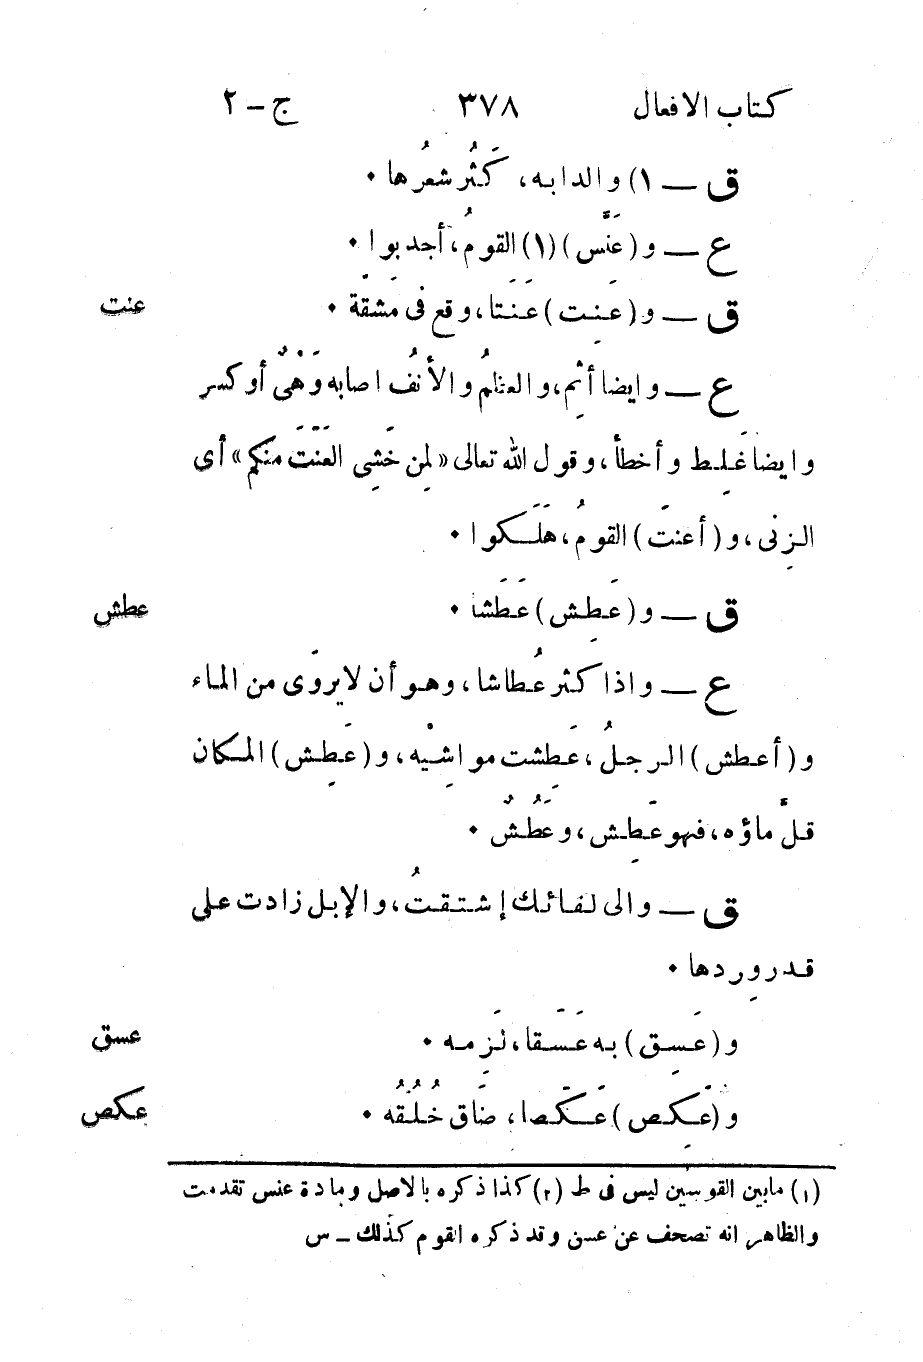 كتاب الافعال ٣٧٨ ج – ٢
ق — ١) والدابه، كَثُر شعرُها ٠
ع — و (عَنَّس) (١) القومُ، أجدبوا ٠
ق — و (عَنِت) عَنَتا، وقع فى مَشقّة ٠ عنت
ع — وايضا أثِم، والعظمُ والأنفُ اصابه وَهْىٌ أو كسر
وايضا غَلِط وأخطأ، وقول الله تعالى « لِمن خَشِى العَنَتَ منكم » أى
الزِنى، و (أعنَت) القومُ، هَلَكوا ٠
ق — و (عَطِش) عَطَشا ٠ عطش
ع — واذا كثر عُطاشا، وهو أن لايروَى من الماء
و (أعطش) الرجلُ، عَطِشت مواشِيْه، و (عَطِش) المكان
قلَّ ماؤه، فهو عَطِش، وعَطُشٌ ٠
ق — والى لقائك إشتقتُ، والإبل زادت على
قدر وِردها ٠
و (عَسِق) به عَسَقا، لَزِمه ٠ عسق
و (عَكِص) عَكَصا، ضَاق خُلُقُه ٠ عكص
(١) مابين القوسين ليس فى ط (٢) كذا ذكره بالاصل ومادة عنس تقدمت
والظاهر انه تصحف عن عسن وقد ذكره القوم كذلك – س